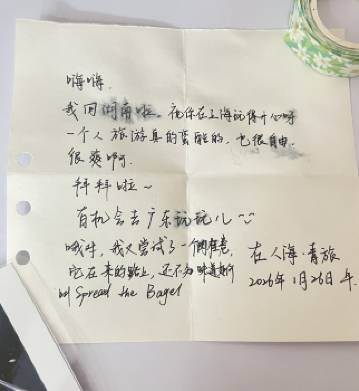 嗨嗨.
我回湖南啦。祝你在上海玩得开心呀
一个人旅游真的蛮酷的,也很自由.
很爽啊.
拜拜啦~
有机会去广东玩玩儿~
哦对,我又尝试了一个
它在来的路上,还不知味道如何
叫 Spread the Bagel
在人海·青旅
2026年1月26日